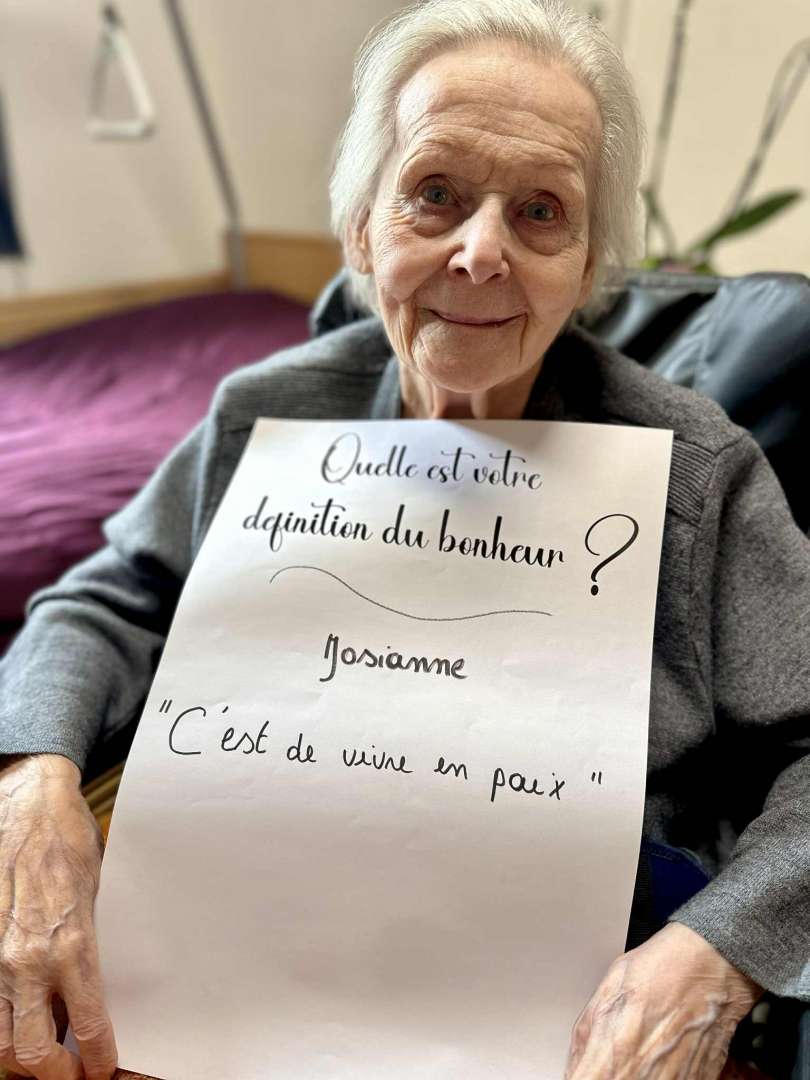 Quelle est votre
définition du bonheur ?
Josianne
"C'est de vivre en paix"